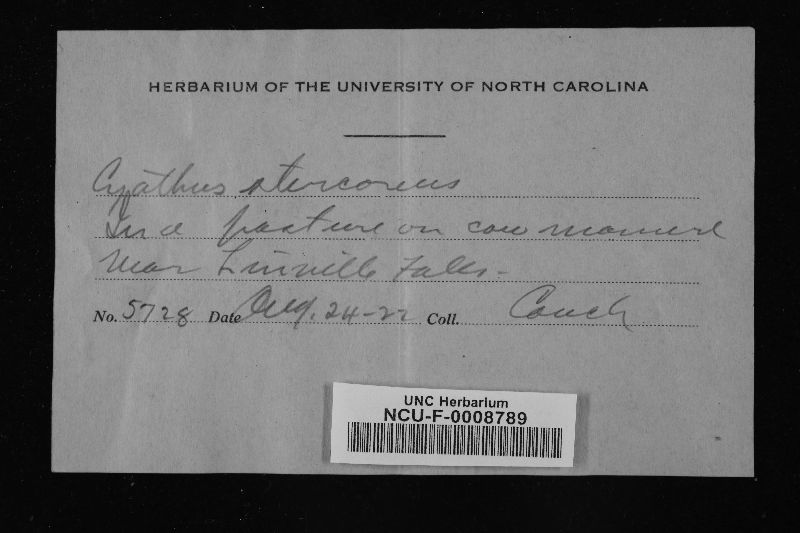 HERBARIUM OF THE UNIVERSITY OF NORTH CAROLINA
Cyathus stercoreus
In a pasture on cow manure
Near Linville Falls-
No. 5728 Date Aug. 24-22 Coll. Couch
UNC Herbarium
NCU-F-0008789